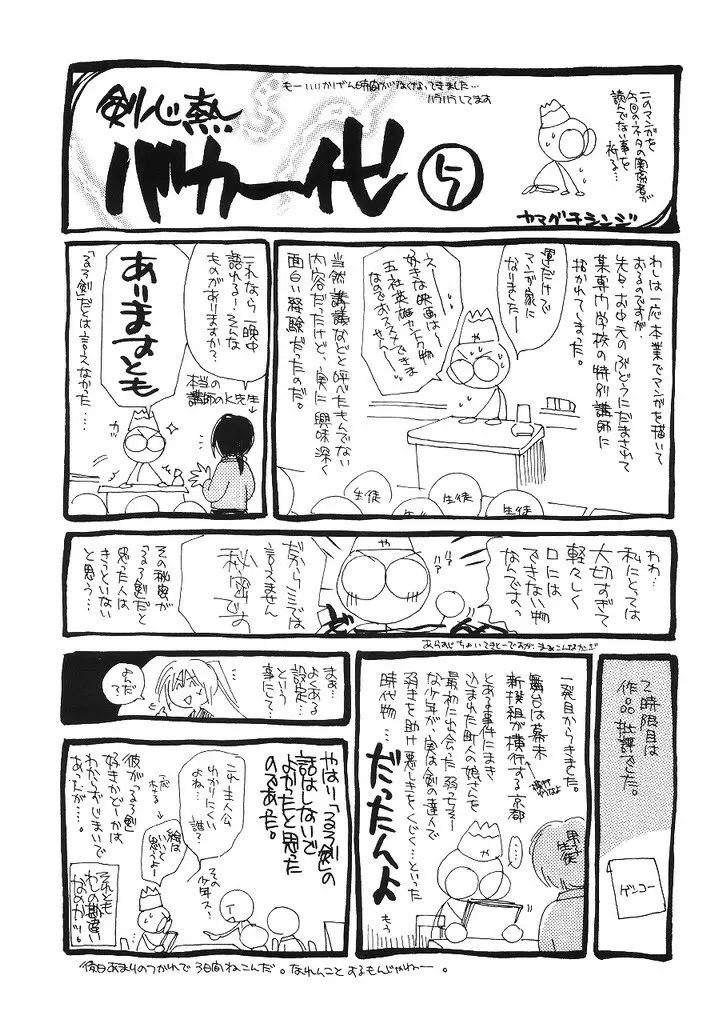 もーいいかげん時間がなくなってきました…
バラバラしてます
剣心熱
バカ一代
⑤
このマンガを
今回のネタの関係者が
読んでない事を
祈る…
ヤマグチシンジ
わしは一応本業でマンガを描いて
あるのですが、
先日、お中元のぶどうにだまされて
某専門学校の特別講師に
招かれてしまった。
運だけで
マンガ家に
なりましたー
えー…
好きな映画は〜
五社英雄カントク物
なのでおススメできま
せんー
や
当然講議などと呼べたもんでない
内容だったけど、実に興味深く
面白い経験だったのだ。
生徒
生徒
生徒
これなら一晩中
語れるー！そんな
ものがありますか？
本当の
講師のK先生
ありますとも
ガバ
「るろ剣」だとは言えなかった…
わわ…
私にとっては
大切すぎて
軽々しく
口には
できない物
なんですっ
や
ハァ
ハァ
だからここでは
言えません
秘密です
その秘密が
るろ剣だと
思った人は
きっといない
と思う…
2時限目は
作品批評でした。
ゲンコー
あらすじちょいてきとーですが、まぁこんなカンジ
一発目からきました。
舞台は幕末
新撰組が横行する京都
とある事件にまき
込まれた町人の娘さんを
最初に出会った弱っちそー
な少年が、実は剣の達人で
弱きを助け悪しきをくじく…といった
時代物…
だったんよ
もう
男子
生徒
……
や
まぁ…
よくある
設定…
という
事にして…
よろ
だ
やはり「るろ剣」の
話はしないで
よかったと思った
のであった。
これ主人公
わかりにくい
よね
誰？
その
少年ス？
絵は
いいと
思うよー
彼が「るろ剣」
好きかどーかは
わからずじまいで
あったが…。
それとも
わしの勘違い
なのかっ。
後日あまりのつかれで3日間ねこんだ。なれんことするもんじゃねー。